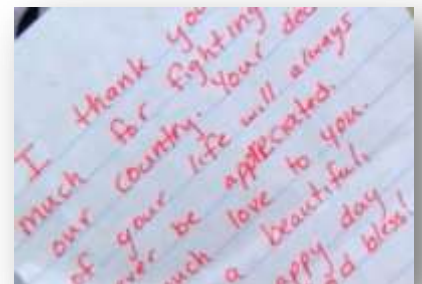 I thank you
much for fighting
our country. Your
of your life will always
be appreciated.
much love to you.
a beautiful,
happy day
bless!